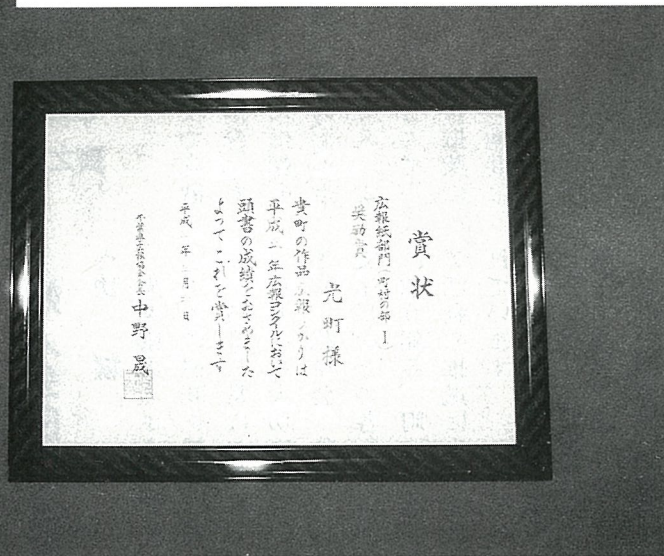 賞状
広報紙部門（町村の部 Ⅰ）
奨励賞
光町様
貴町の作品 広報ひかりは
平成 年広報コンクールにおいて
頭書の成績をおさめました
よってこれを賞します
平成 年 月 日
千葉県広報協会会長 中野 晟